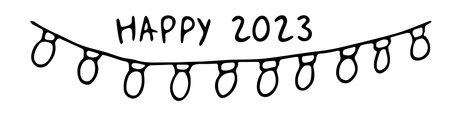 HAPPY 2023